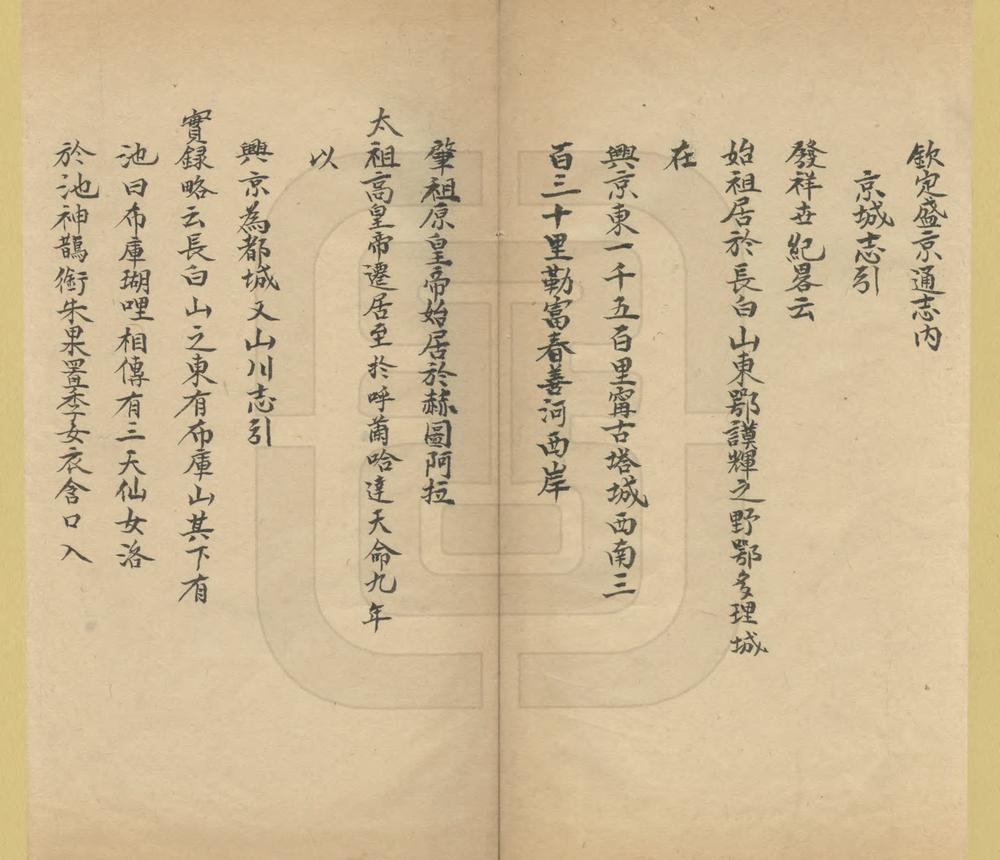 欽定盛京通志內
京城志引
發祥世紀畧云
始祖居於長白山東鄂謨輝之野鄂多理城
在
興京東一千五百里甯古塔城西南三
百三十里勒富春善河西岸
肇祖原皇帝始居於赫圖阿拉
太祖高皇帝遷居至於呼蘭哈達天命九年
以
興京為都城又山川志引
實録略云長白山之東有布庫山其下有
池曰布庫瑚哩相傳有三天仙女浴
於池神鵲銜朱果置季女衣含口入